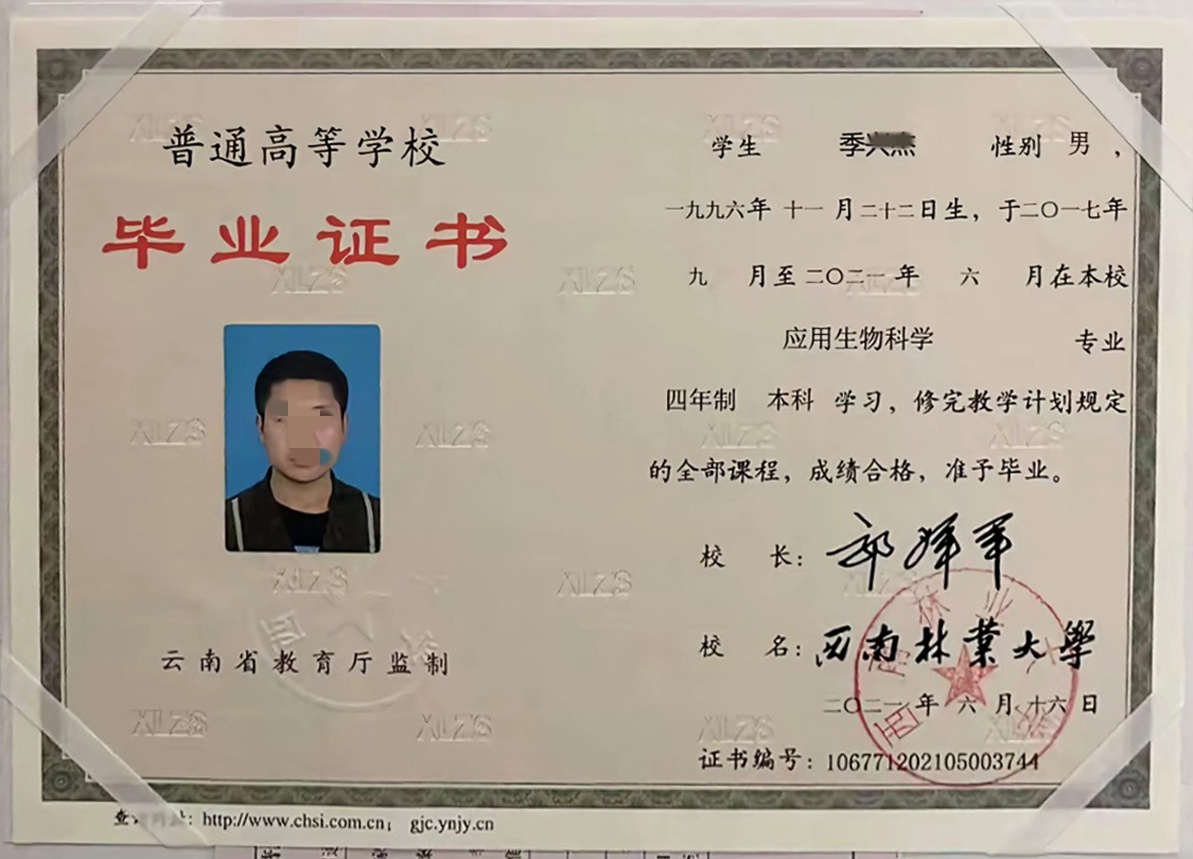 普通高等学校
毕业证书
云南省教育厅监制
学生 季 性别 男，
一九九六年 十一 月二十二日生，于二〇一七年
九 月至二〇二一年 六 月在本校
应用生物科学 专业
四年制 本科 学习，修完教学计划规定
的全部课程，成绩合格，准予毕业。
校 长：
校 名：西南林业大學
二〇二一年 六 月 十六 日
证书编号：106771202105003744
http://www.chsi.com.cn； gjc.ynjy.cn
XLZS